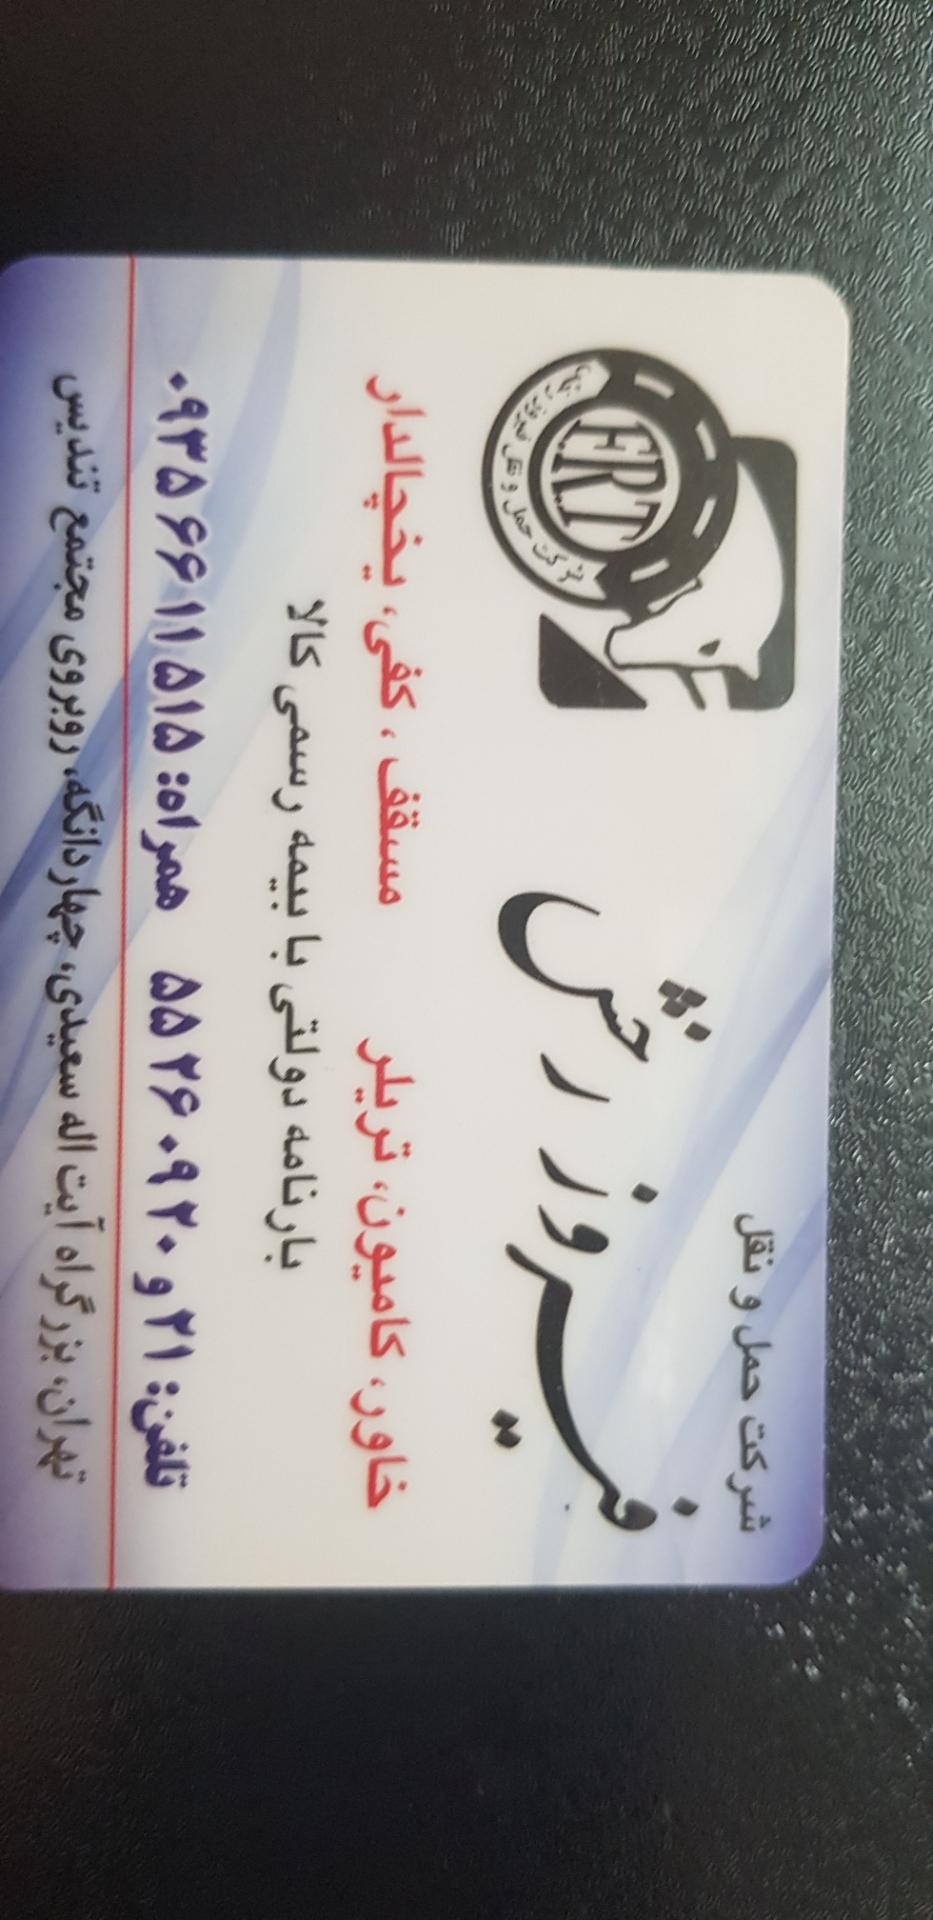 شرکت حمل و نقل
فیروز رخش
F.R.T
خاور، کامیون، تریلر
مسقف ، کفی، یخچالدار
بارنامه دولتی با بیمه رسمی کالا
تلفن: ۲۱ و ۵۵۲۶۰۹۲۰ همراه: ۰۹۳۵۶۶۱۱۵۱۵
تهران، بزرگراه آیت اله سعیدی، چهاردانگه، روبروی مجتمع تندیس